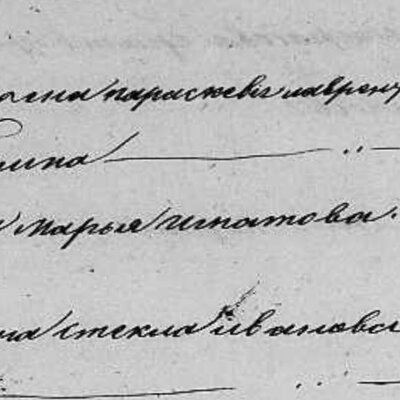 параскевѣ лаврент
и марья игнатова.
на стекла ивановс